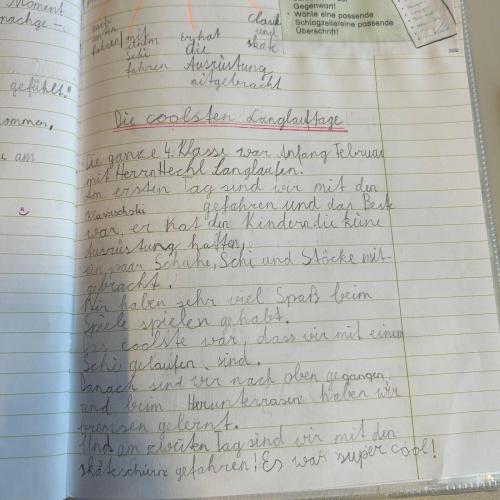 Moment
nachge-
gefühlt."
kommen,
am
mit
einem
Schi
fahren
Er hat
die
Ausrüstung
mitgebracht
und
skate
Gegenwart!
• Wähle eine passende
Schlagzeile/eine passende
Überschrift!
Die coolsten Langlauftage
Die ganze 4. Klasse war Anfang Februar
mit Herrn Hechl Langlaufen.
Am ersten Tag sind wir mit den
Klassischski gefahren und das Beste
war, er hat den Kindern die keine
Ausrüstung hatten,
ein paar Schuhe, Schi und Stöcke mit-
gebracht.
Wir haben sehr viel Spaß beim
Spiele spielen gehabt.
Das coolste war, dass wir mit einem
Schi gelaufen sind.
Danach sind wir nach oben gegangen
und beim Herunterrasen haben wir
bremsen gelernt.
Und am zweiten Tag sind wir mit den
gefahren! Es war super cool!